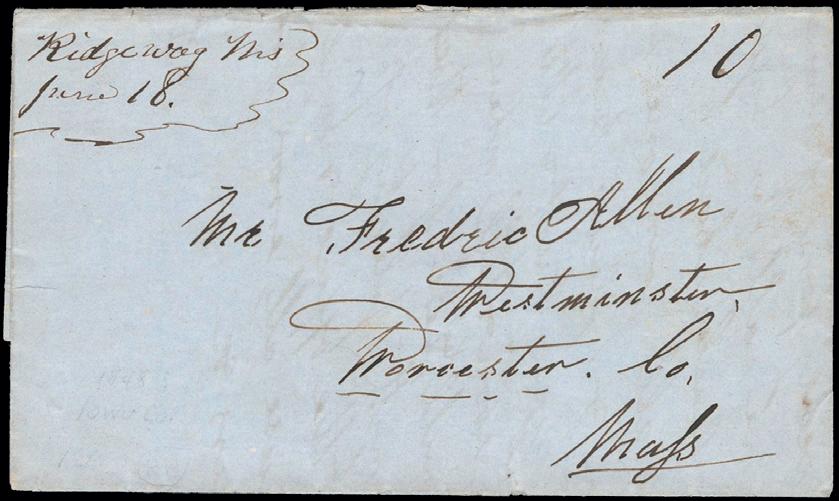 Ridgeway Wis
June 18.
10
Mr Fredric Allen
Westminster,
Worcester. Co,
Mass
1848
Iowa Co.